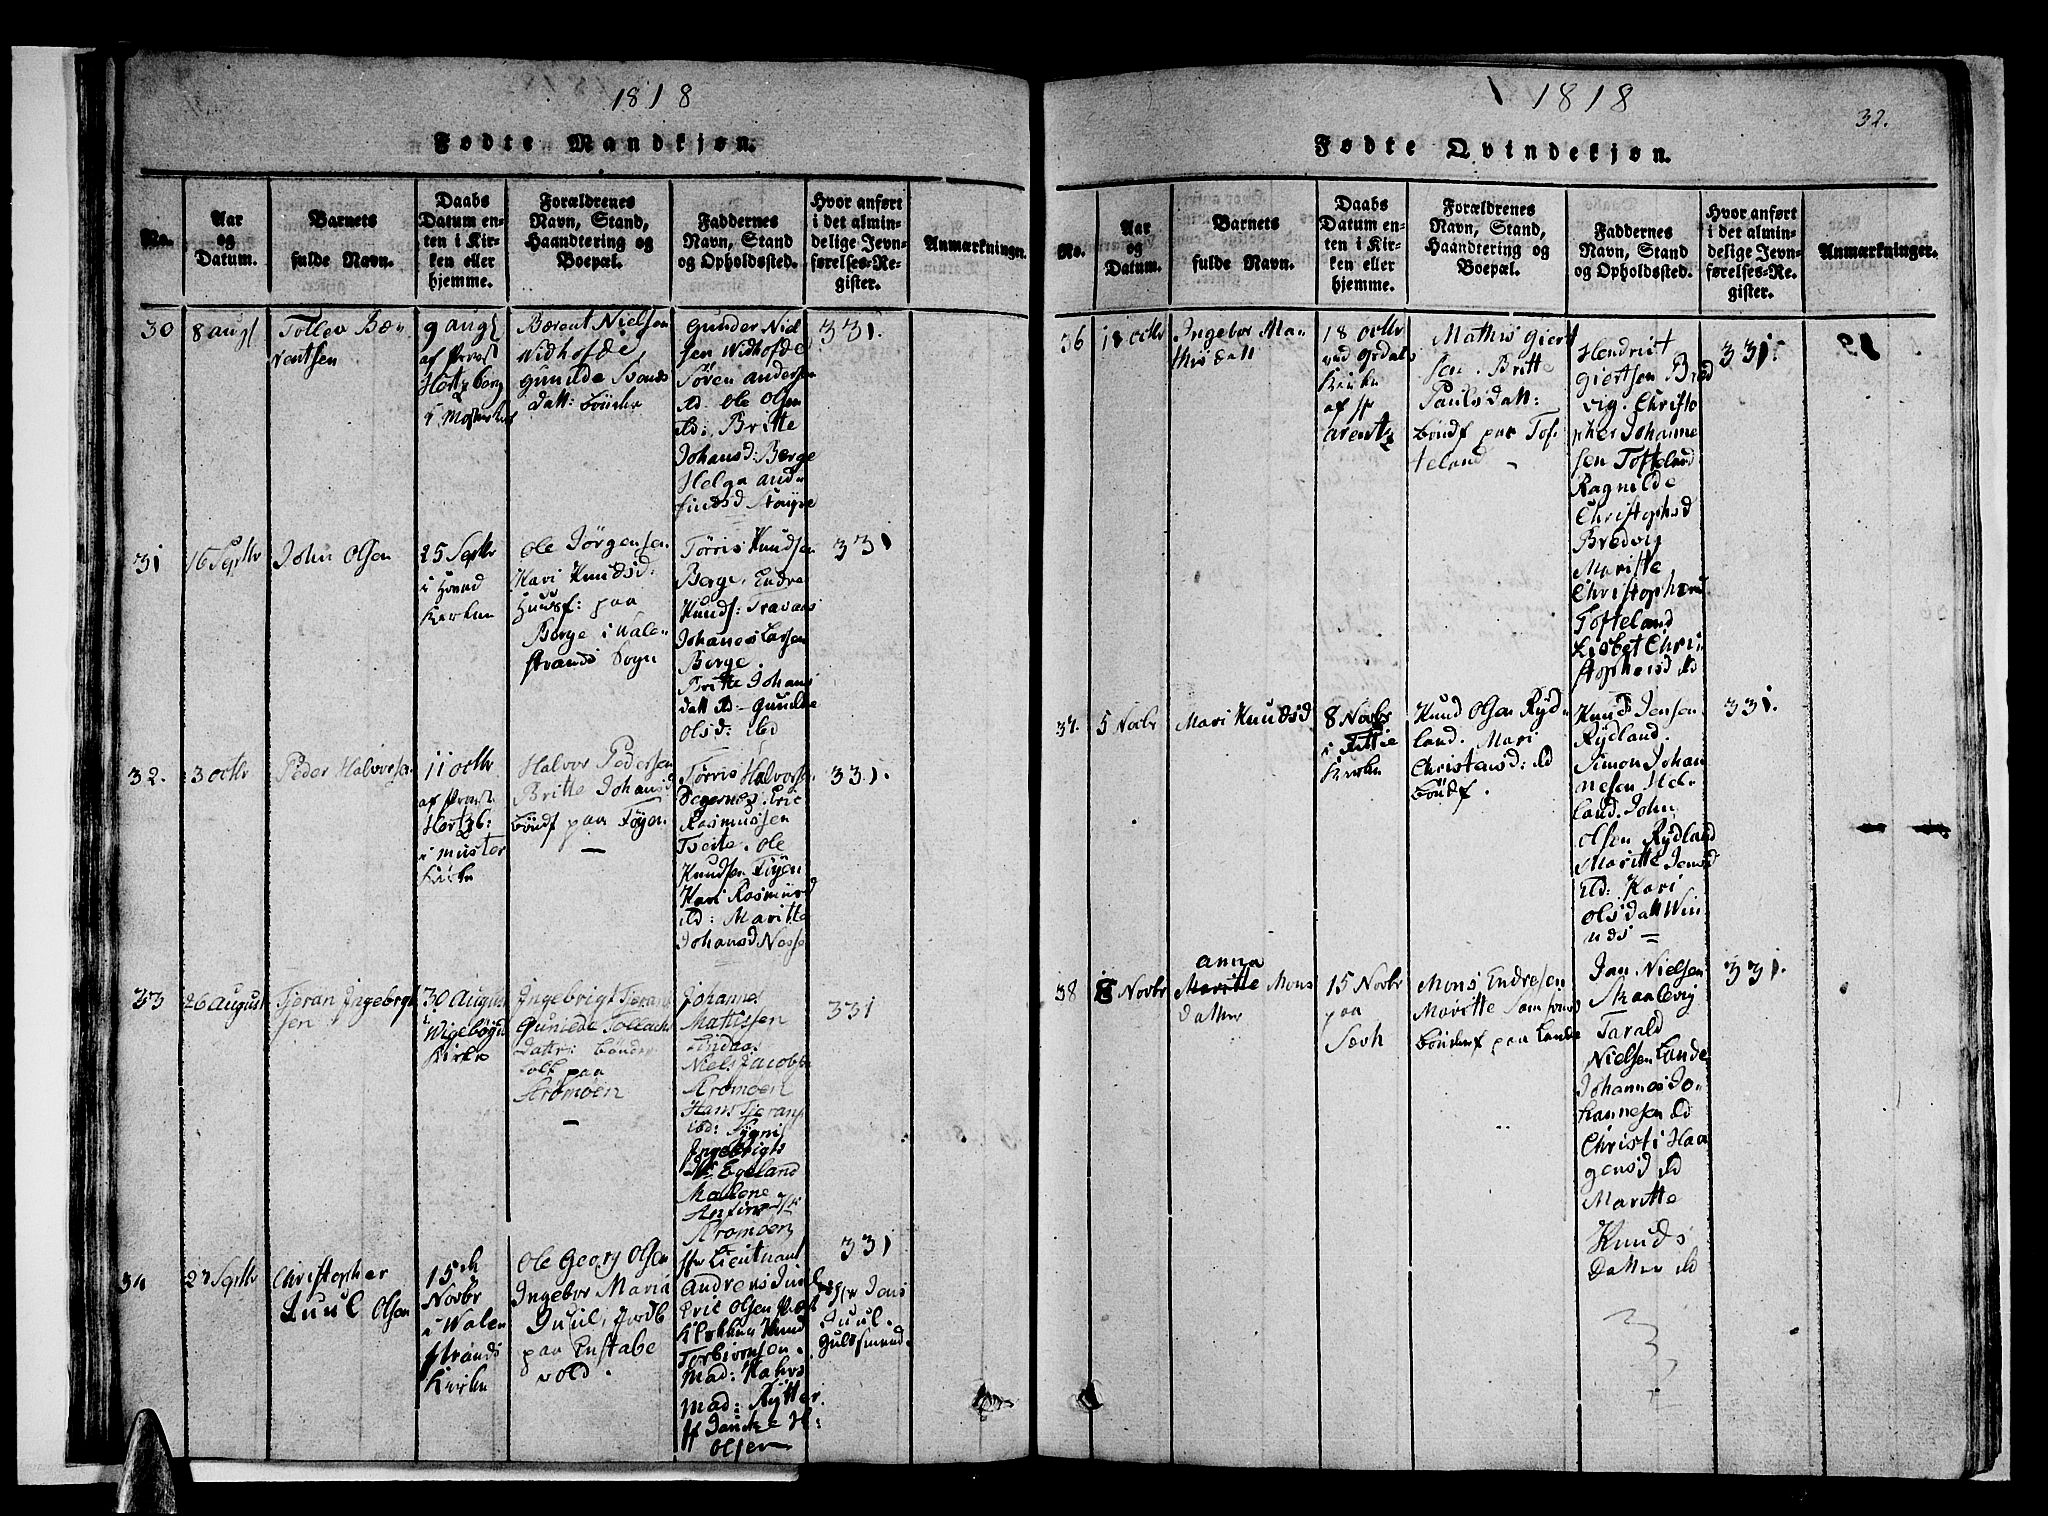 1818
Fødte Mandkjøn.
No.
Aar
og
Datum.
Barnets
fulde Navn.
Daabs
Datum en-
ten i Kir-
ken eller
hjemme.
Forældrenes
Navn, Stand,
Haandtering og
Boepæl.
Faddernes
Navn, Stand
og Opholdssted.
Hvor anført
i det almin-
delige Jevn-
førelses-Re-
gister.
Anmærkninger.
30
8 augs
Tollev Bæ-
rentsen
9 augs
af Provst
Hertzberg
i Moster
Bærent Nielsen
Widhofde
gunilde
datt: bönder
Gunder Niel
sen Widhofde
Sören andersen
ibd. Ole Olsen
ibd: Britte
Johansd: Berge
Helga and-
finds d
331.
31
16 Septbr
John Olsen
25 Septbr
i
Kirken
Ole Jörgensen
Kari Knudsd:
Huusf: paa
Berge i Wale-
strands Sogn
Törris Knudsen
Berge. Endre
Knuds:
Johanes Larsen
Berge.
Britte Johans
datt ibd - Gunilde
olsd: ibd
331
32.
3 octbr
Peder Halvorsen
11 octbr
af Provst
Hertzb:
i muster
Kirke
Halvor Pedersen
Britte Johansd
böndf paa Föyen
Törris Halvorsen
Degernes. Eric
Rasmussen
Tveite. Ole
Knudsen Föyen
Kari Rasmusd
ibd: Maritte
Johansd
331.
33
26 August
Tjeran Ingebrigt
sen
30 August
i
Kirke
Ingebrigt Tjerans
Gunilde Tollachs
datter: bönder
folk paa
Kromöen
Johannes
Mathisen
Niels Jacobs
Kromöen
Hans Tjerans
ibd:
Ingebrigts
Egeland
Malene
Kromoen
331
34
27 Septbr
Christopher
Juul Olsen
15de
Novbr
i Walen
strands
Kirke
Ole Georg Olsen
Ingebor Maria
Juul,
paa Enstabe
vold.
Hr Lieutnant
Andreas Juul
Eric Olsen
Klokker Knud
Torbiörnsen.
Mad:
Mad: Rytter
H:
Olsen
331
Hr Jens
Juul.
Guldsmed.
1818
32.
Fødte Qvindekjøn.
No.
Aar
og
Datum.
Barnets
fulde Navn.
Daabs
Datum en-
ten i Kir-
ken eller
hjemme.
Forældrenes
Navn, Stand,
Haandtering og
Boepæl.
Faddernes
Navn, Stand
og Opholdssted.
Hvor anført
i det almin-
delige Jevn-
førelses-Re-
gister.
Anmærkninger.
36
18 octbr
Ingebor Ma-
this datt
18 octbr
ved
Kirke
af Hr
arentz
Mathis Giert
sen. Britte
Paulsdatt:
böndf paa Tof-
teland -
Hendrick
Giertsen Bred
vig. Christo
pher Johanne
sen Tofteland
Ragnilde
Christophsd
Bredvig
Maritte
Christophersd
Tofteland
Lisbet Chri
stophersd ibd
331.
37.
5 Novbr
Mari Knudsd
8 Novbr
i Fittie
Kirke
Knud Olsen Ryd
land. Mari
Christensd: ibd
böndf.
Knud Jensen
Rydland.
Simon Johan
nesen
land. John
Olsen Rydland
Maritte Jensd
ibd: Kari
olsdatt
331.
38
8 Novbr
anna
Maritte Mons
datter
15 Novbr
paa
Mons Endresen
Maritte
bönderf paa Lande
Jan Nielsen
Skaalevig
Tarald
Nielsen Lande
Johannes Jo-
hannesen ibd
Christi Haa
gensd ibd
Maritte
Knuds
datter ibd
331.